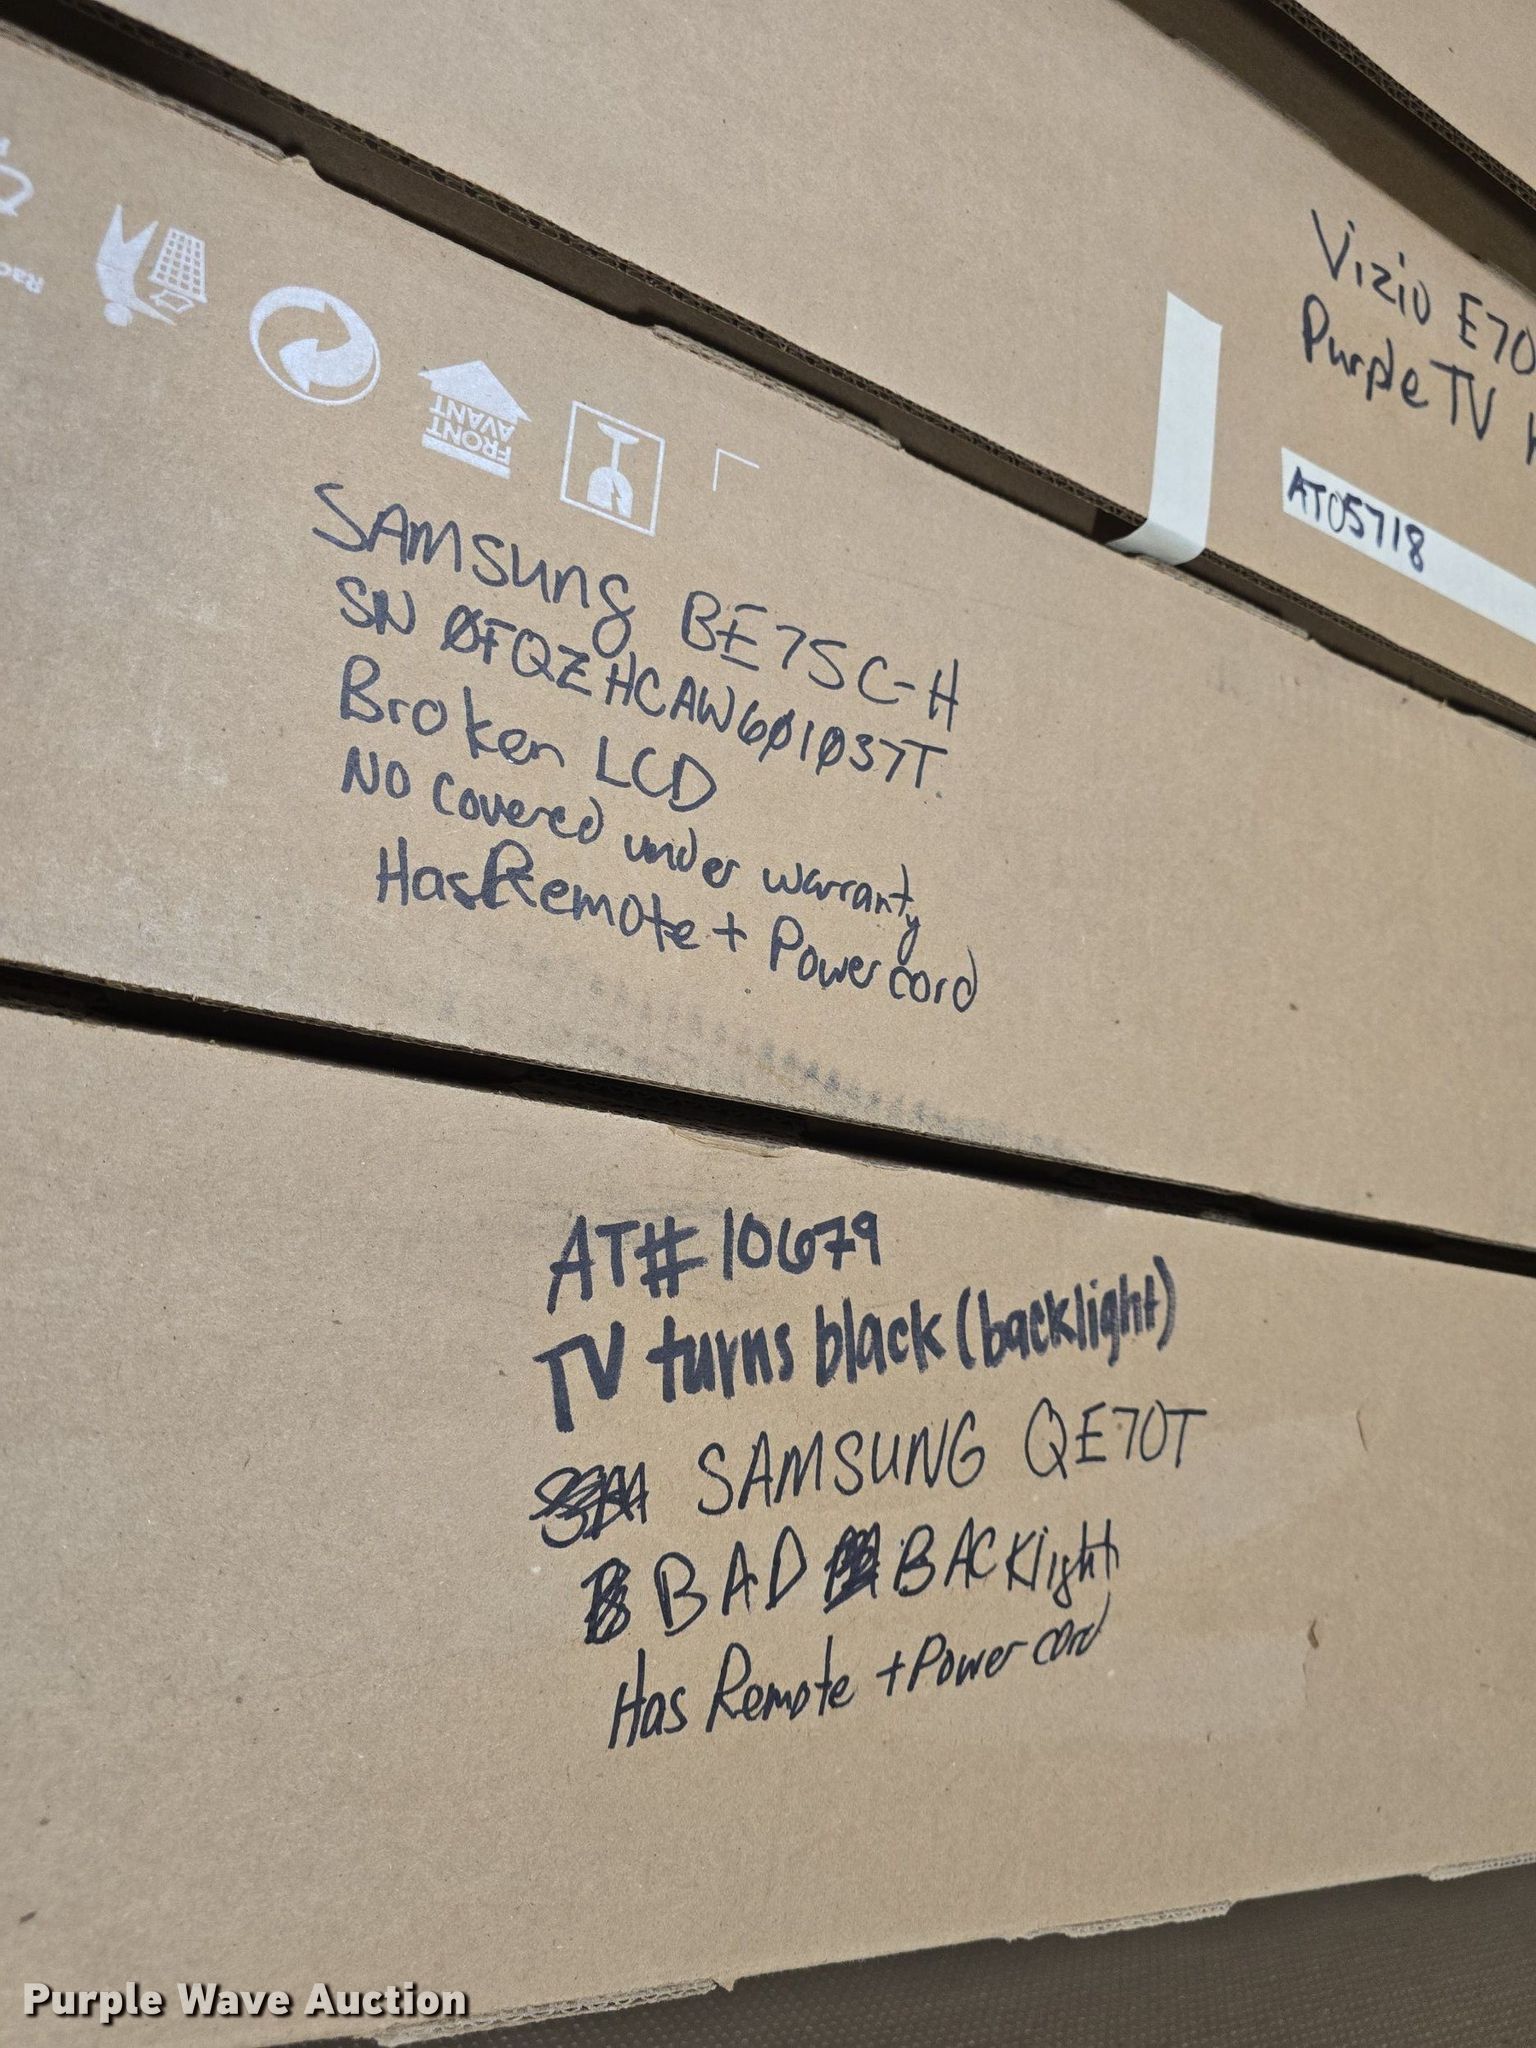 Vizio E70
Purple TV
AT05718
FRONT
AVANT
SAMSung BE75C-H
SN ØFQZHCAW6Ø1Ø37T
Broken LCD
No covered under warranty
Has Remote + Power cord
AT# 10679
TV turns black (backlight)
SAMSUNG QE70T
BAD BACKlight
Has Remote + Power cord
Purple Wave Auction